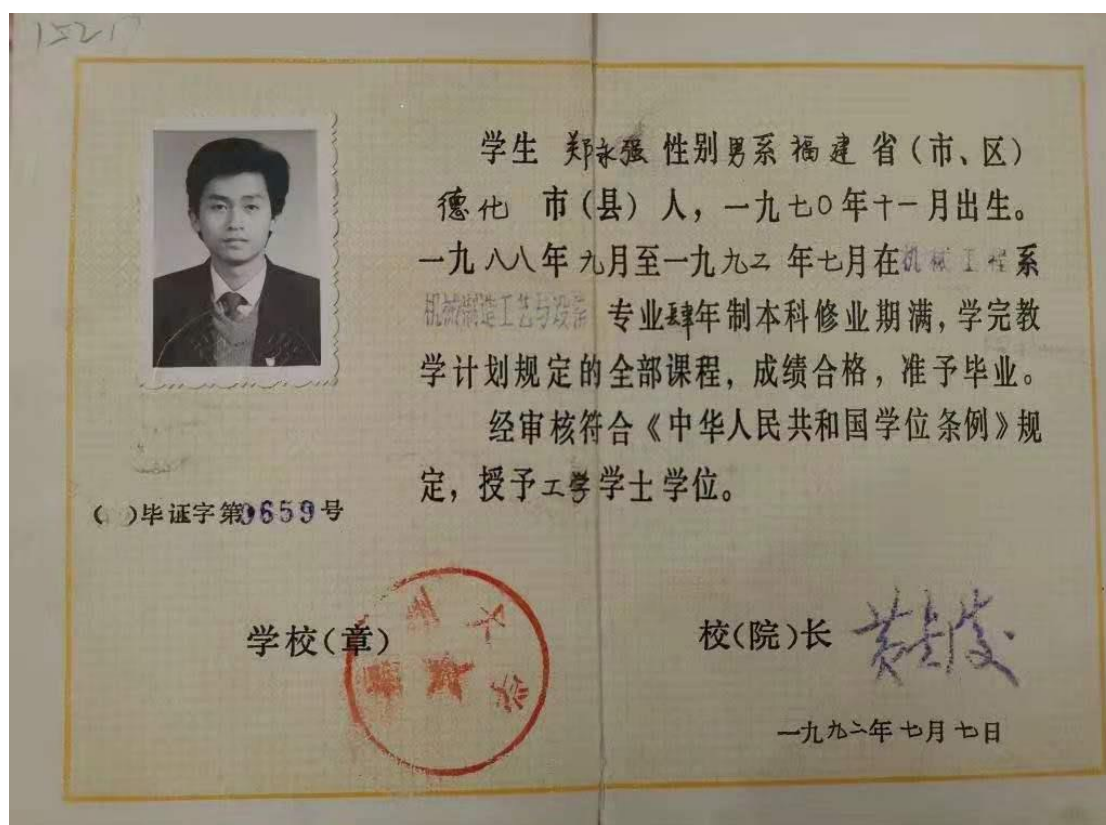 学生 郑永强 性别男系 福建 省(市、区)
德化 市(县)人,一九七〇年十一月出生。
一九八八年九月至一九九二年七月在机械工程系
机械制造工艺与设备 专业肆年制本科修业期满,学完教
学计划规定的全部课程,成绩合格,准予毕业。
经审核符合《中华人民共和国学位条例》规
定,授予工学学士学位。
( )毕证字第9659号
学校(章)
校(院)长
一九九二年七月七日